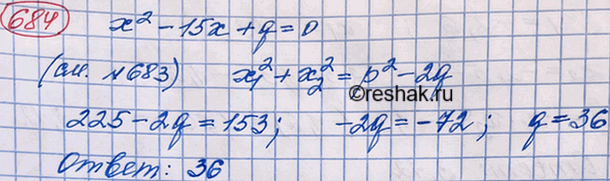 684 x² - 15x + q = 0
(см. №683) x₁² + x₂² = p² - 2q
©reshak.ru
225 - 2q = 153; -2q = -72; q = 36
Ответ: 36